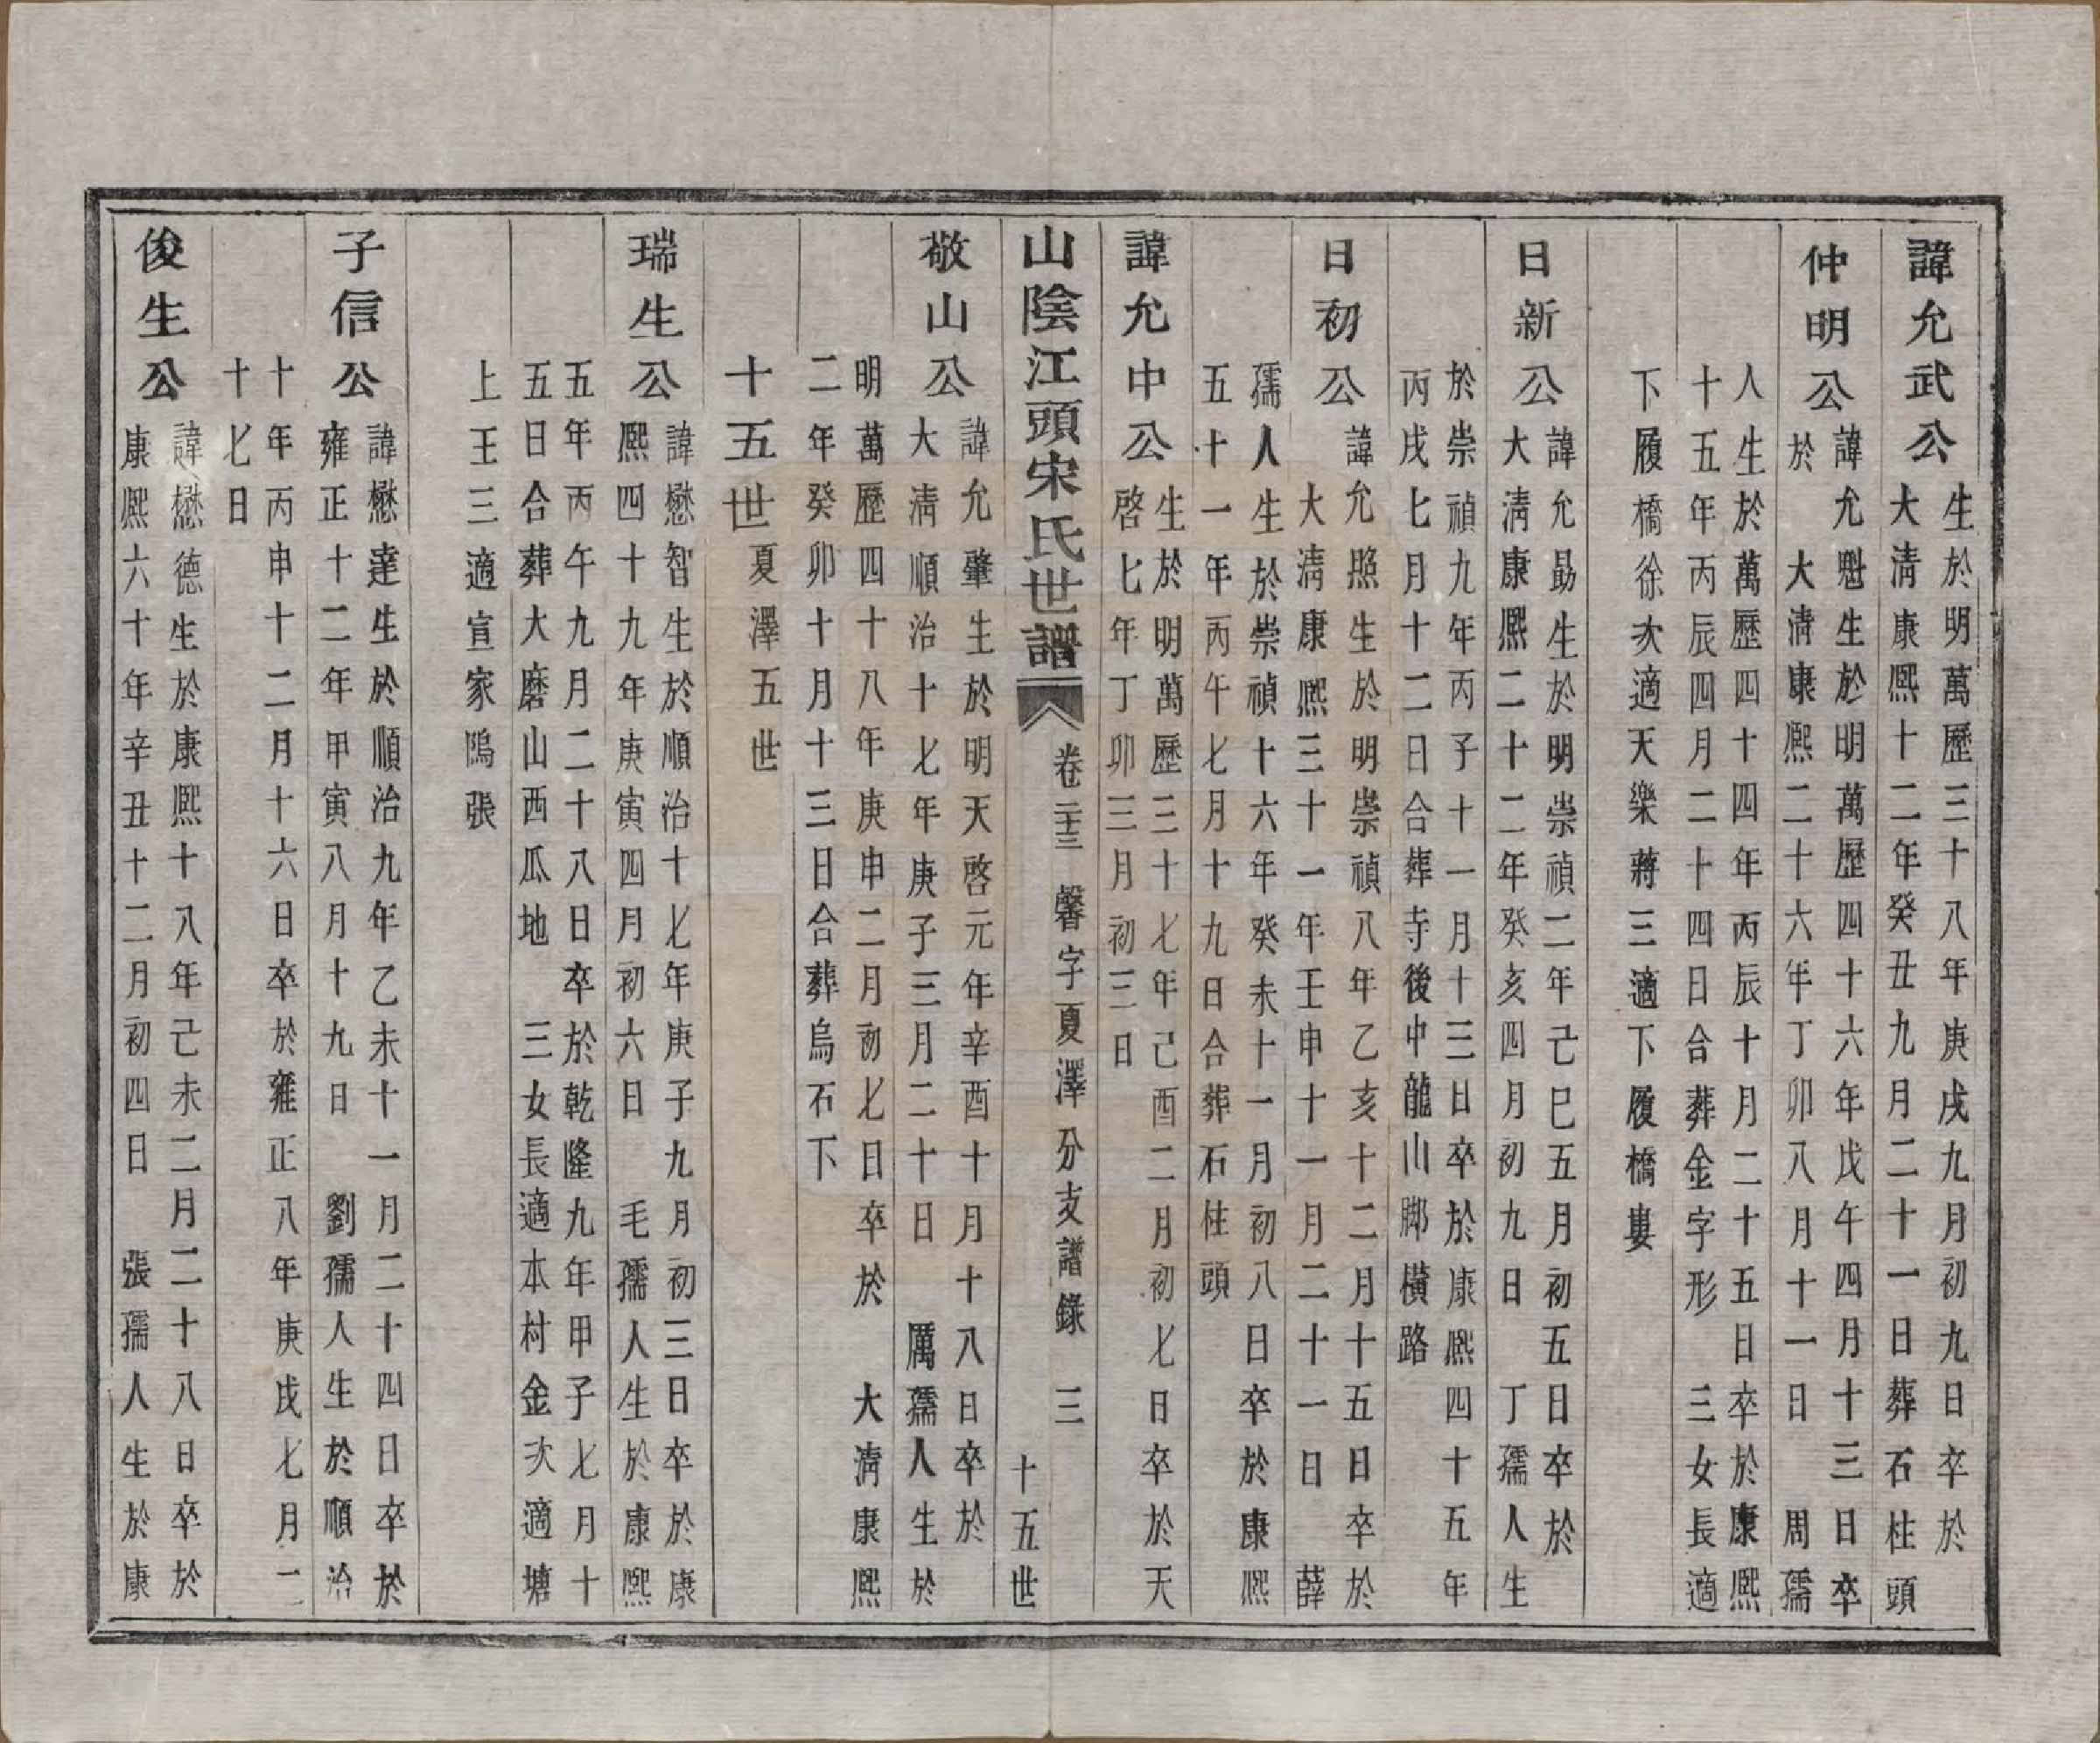 諱允武公
生於明萬歷三十八年庚戌九月初九日卒於
大淸康熙十二年癸丑九月二十一日葬石柱頭
仲明公
諱允魁生於明萬歷四十六年戊午四月十三日卒
於　大淸康熙二十六年丁卯八月十一日　周孺
人生於萬歷四十四年丙辰十月二十五日卒於康熙
十五年丙辰四月二十四日合葬金字形　三女長適
下履橋徐次適天樂蔣三適下履橋婁
日新公
諱允勗生於明崇禎二年己巳五月初五日卒於
大淸康熙二十二年癸亥四月初九日　丁孺人生
於崇禎九年丙子十一月十三日卒於康熙四十五年
丙戌七月十二日合葬寺後中龍山脚橫路
日初公
諱允照生於明崇禎八年乙亥十二月十五日卒於
大淸康熙三十一年壬申十一月二十一日　薛
孺人生於崇禎十六年癸未十一月初八日卒於康熙
五十一年丙午七月十九日合葬石柱頭
諱允中公
生於明萬歷三十七年己酉二月初七日卒於天
啓七年丁卯三月初三日
山陰江頭宋氏世譜
卷二十三　馨字夏澤分支譜錄　三
十五世
敬山公
諱允肇生於明天啓元年辛酉十月十八日卒於
大淸順治十七年庚子三月二十日　厲孺人生於
明萬歷四十八年庚申二月初七日卒於　大淸康熙
二年癸卯十月十三日合葬烏石下
十五世　夏澤五世
瑞生公
諱懋智生於順治十七年庚子九月初三日卒於康
熙四十九年庚寅四月初六日　毛孺人生於康熙
五年丙午九月二十八日卒於乾隆九年甲子七月十
五日合葬大磨山西瓜地　三女長適本村金次適塘
上王三適宣家塢張
子信公
諱懋達生於順治九年乙未十一月二十四日卒於
雍正十二年甲寅八月十九日　劉孺人生於順治
十年丙申十二月十六日卒於雍正八年庚戌七月二
十七日
俊生公
諱懋德生於康熙十八年己未二月二十八日卒於
康熙六十年辛丑十二月初四日　張孺人生於康